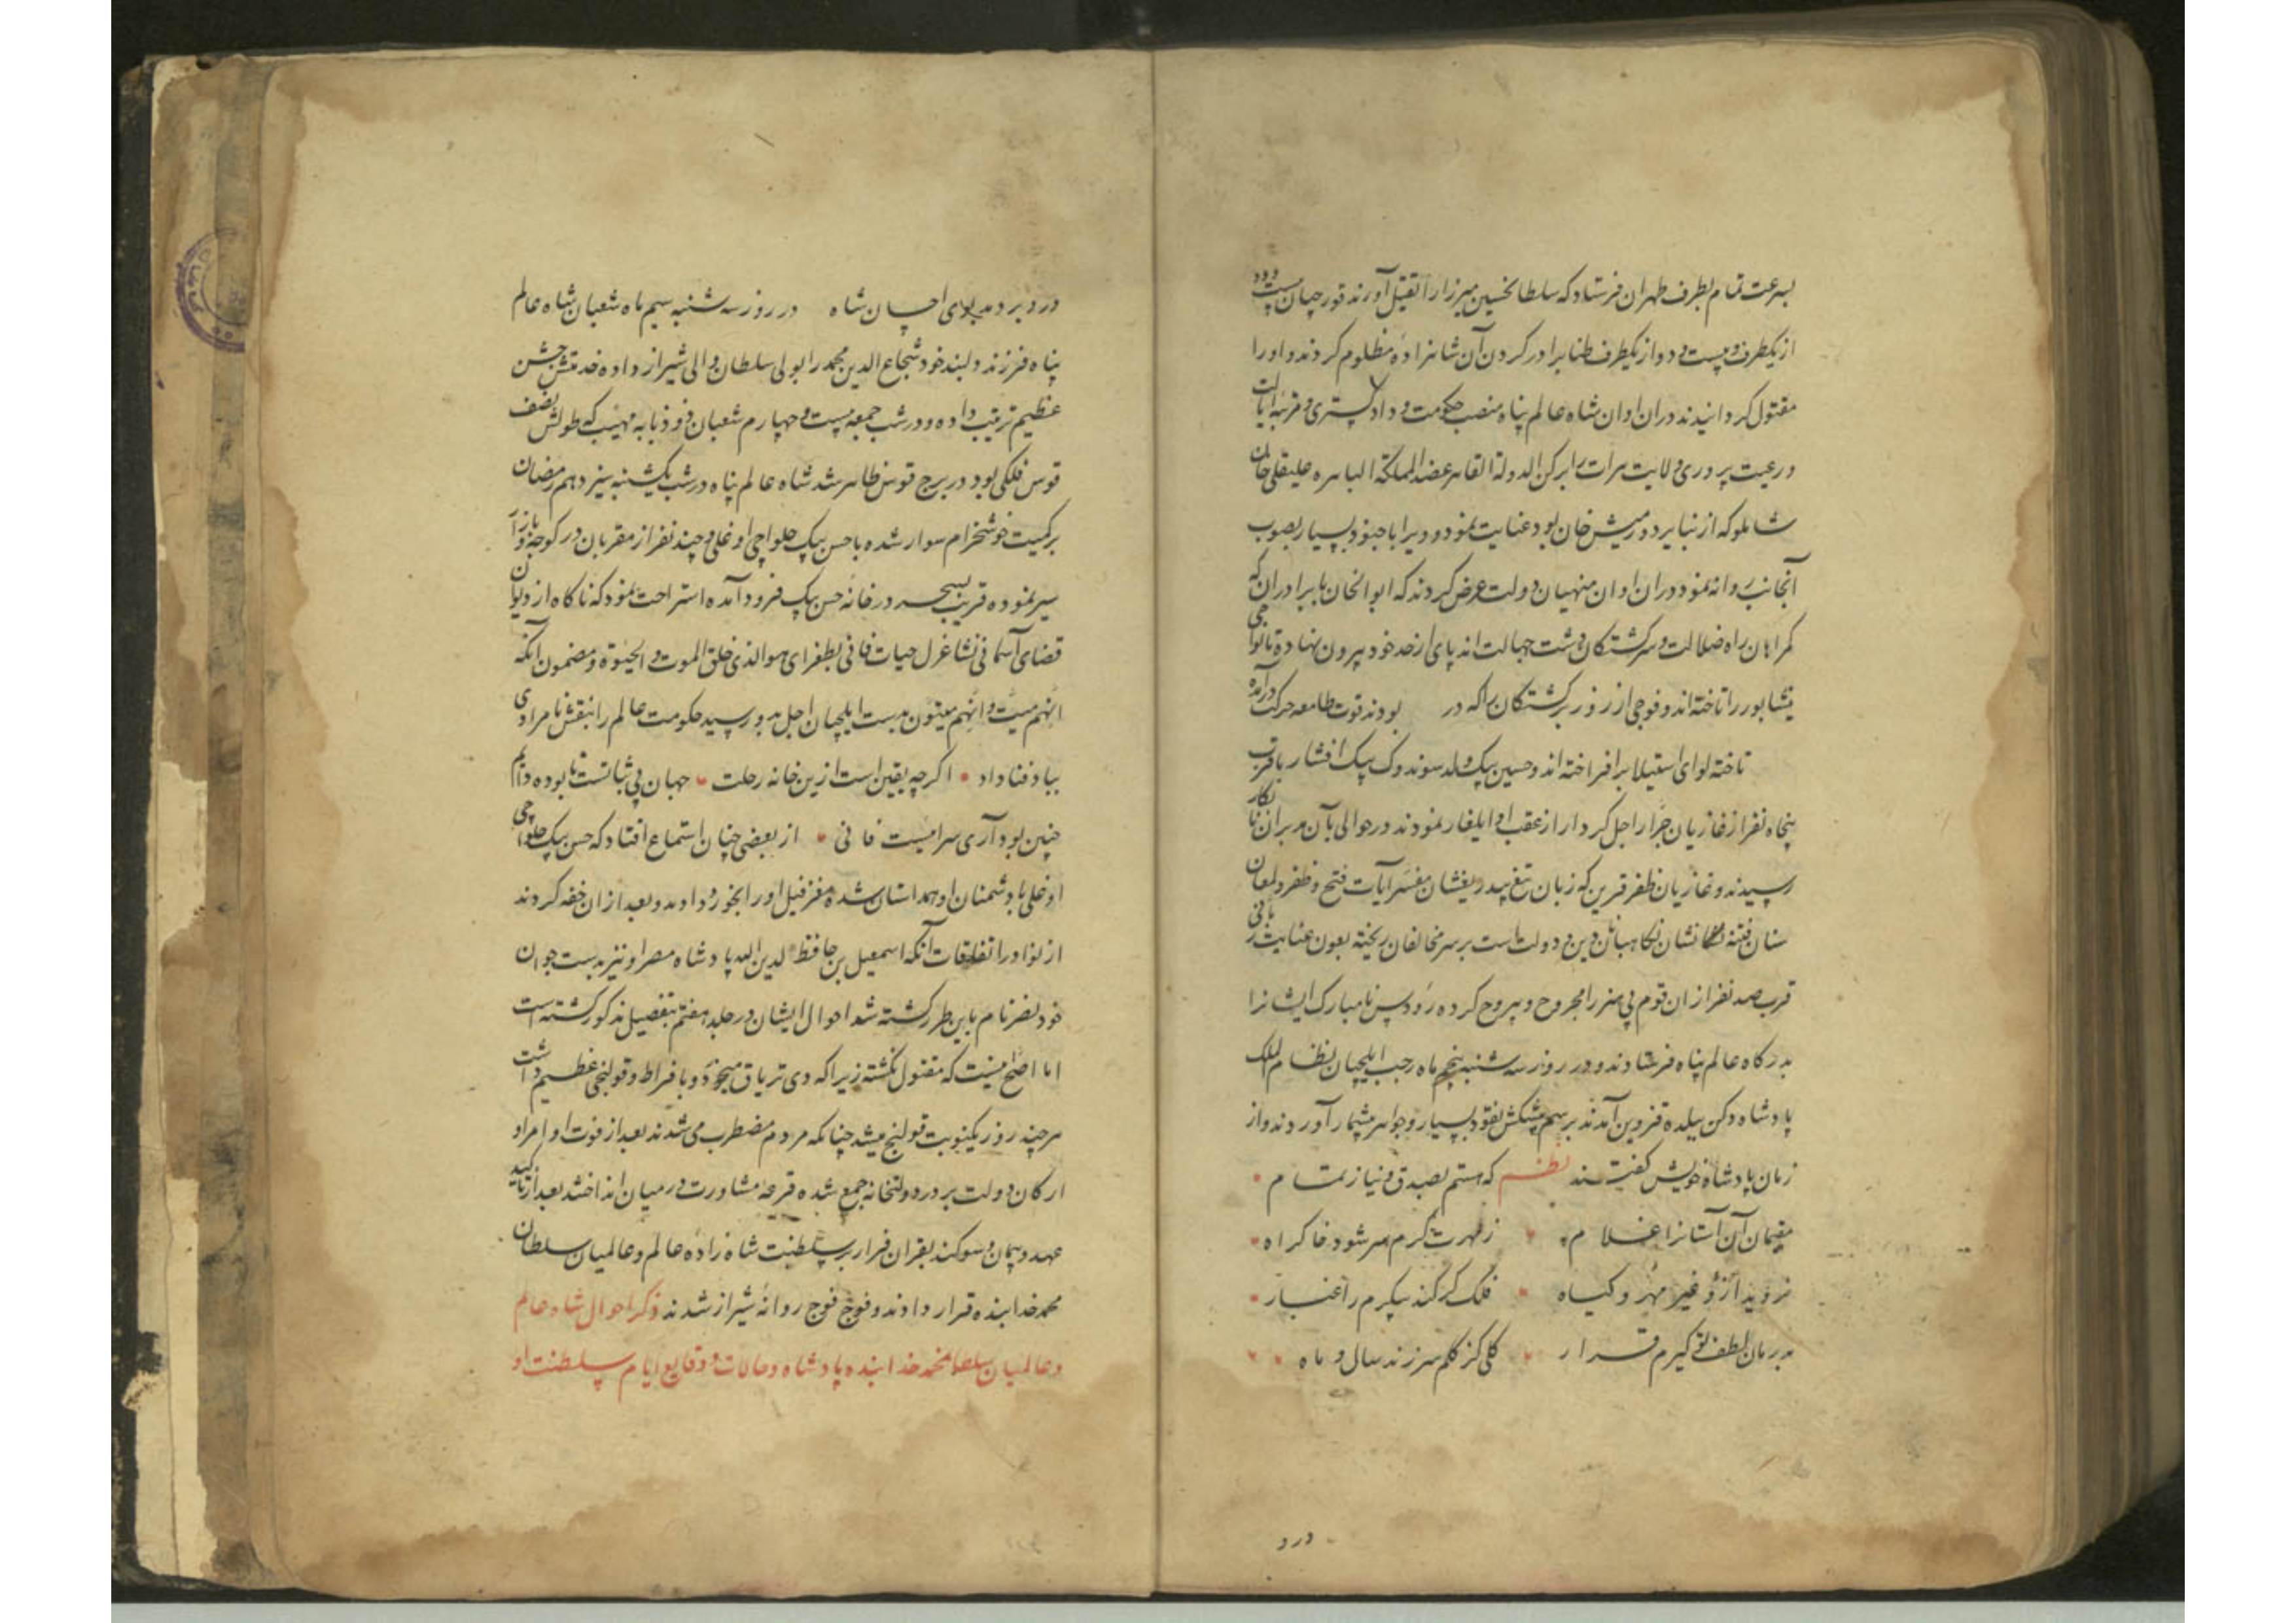 بسرعت تمام بطرف طهران فرستاد که سلطانحسین میرزا را بقتل آورند قورچیان بیست و دو
از یکطرف و بیست و دو از یکطرف طناب را در کردن آن شاهزاده مظلوم کردند و اورا
مقتول کردانیدند دران اوان شاه عالم پناه منصب حکومت و دادکستری و مرتبه ایالت
و رعیت پروری ولایت هرات را برکن الدوله القاهره عضد المملکة الباهره علیقلی خان
شاملو که از نبایر دورمیش خان بود عنایت نمود و ویرا با جنود بسیار بصوب
آنجانب روانه نمود دران اوان منهیان دولت عرض کردند که ابوالخان با برادران که
کمراهان راه ضلالت و سرکشتکان دشت جهالت اند پای از حد خود بیرون نهاده تا نواحی
نیشابور را تاخته اند و فوجی از روز برکشتکان را که در بودند قوت طامعه حرکت درآمده
تاخته لوای استیلا برافراخته اند و حسین بیک ولد سوندوک بیک افشار با قرب
پنجاه نفر از غازیان جرار اجل کردار از عقب او ایلغار نمودند در حوالی بآن مدبران نابکار
رسیدند و غازیان ظفر قرین که زبان تیغ بیدریغشان مفسر آیات فتح و ظفر و لمعان
سنان فتنه نشان نکاهبان دین و دولت است بر سر مخالفان ریخته بعون عنایت ربانی
قرب صد نفر از ان قوم بی هنر را مجروح و بیروح کرده رؤوس نامبارک ایشانرا
بدرکاه عالم پناه فرستادند و در روز سه شنبه پنجم ماه رجب ایلچیان نظام الملک
پادشاه دکن ببلده قزوین آمدند برسم پیشکش نقود بسیار و جواهر بیشمار آوردند و از
زبان پادشاه خویش کفتند نظم که هستم بصدق و نیاز تمام
مقیمان آن آستانرا غلام ز مهرت کرم سر شود خاک راه
نروید ازو غیر مهر و کیاه فلک کر کند پیکرم را غبار
بدرمان لطف تو کیرم قرار کلی کز کلم سر زند سال و ماه
درد
درد بر دمد بوی احسان شاه در روز سه شنبه سیم ماه شعبان شاه عالم
پناه فرزند دلبند خود شجاع الدین محمد را بولی سلطان والی شیراز داده خدمتش جشن
عظیم ترتیب داده و در شب جمعه بیست و چهارم شعبان ذو ذنابه مهیب که طولش نصف
قوس فلکی بود در برج قوس ظاهر شد شاه عالم پناه در شب یکشنبه سیزدهم رمضان
بر کمیت خوشخرام سوار شده با حسن بیک حلواچی اوغلی و چند نفر از مقربان در کوچه و بازار
سیر نموده قریب بسحر در خانه حسن بیک فرود آمده استراحت نمود که ناکاه از دیوان
قضای آسمانی نشان عزل حیات فانی بطغرای هوالذی خلق الموت و الحیوة و مضمون انکه
انهم میت و انهم میتون بدست ایلچیان اجل بدو رسید حکومت عالم را بنقش نامرادی
بباد فنا داد اکرچه یقین است ازین خانه رحلت جهان بی ثباتست تا بوده دایم
چنین بود آری سرائیست فانی از بعضی چنان استماع افتاد که حسن بیک حلواچی
اوغلی با دشمنان او همداستان شده مغز فیل اورا بخورد دادند و بعد از ان خفه کردند
از نوادر اتفاقات آنکه اسمعیل بن حافظ لدین الله پادشاه مصر او نیز بدست جوان
خود نصر نام باین طرز کشته شد احوال ایشان در جلد هفتم بتفصیل مذکور کشته است
اما اصح اینست که مقتول نکشته زیرا که وی تریاق میخورد و بافراط و قولنجی عظیم داشت
هر چند روز یکنوبت قولنج میشد چنانکه مردم مضطرب می شدند بعد از فوت او امرا و
ارکان دولت بر در دولتخانه جمع شده قرعه مشاورت در میان انداختند بعد از تاکید
عهد و پیمان و سوکند بقران قرار بر سلطنت شاه زاده عالم و عالمیان سلطان
محمد خدابنده قرار دادند و فوج فوج روانه شیراز شدند ذکر احوال شاه عالم
و عالمیان سلطانمحمد خدابنده پادشاه و حالات و وقایع ایام سلطنت او